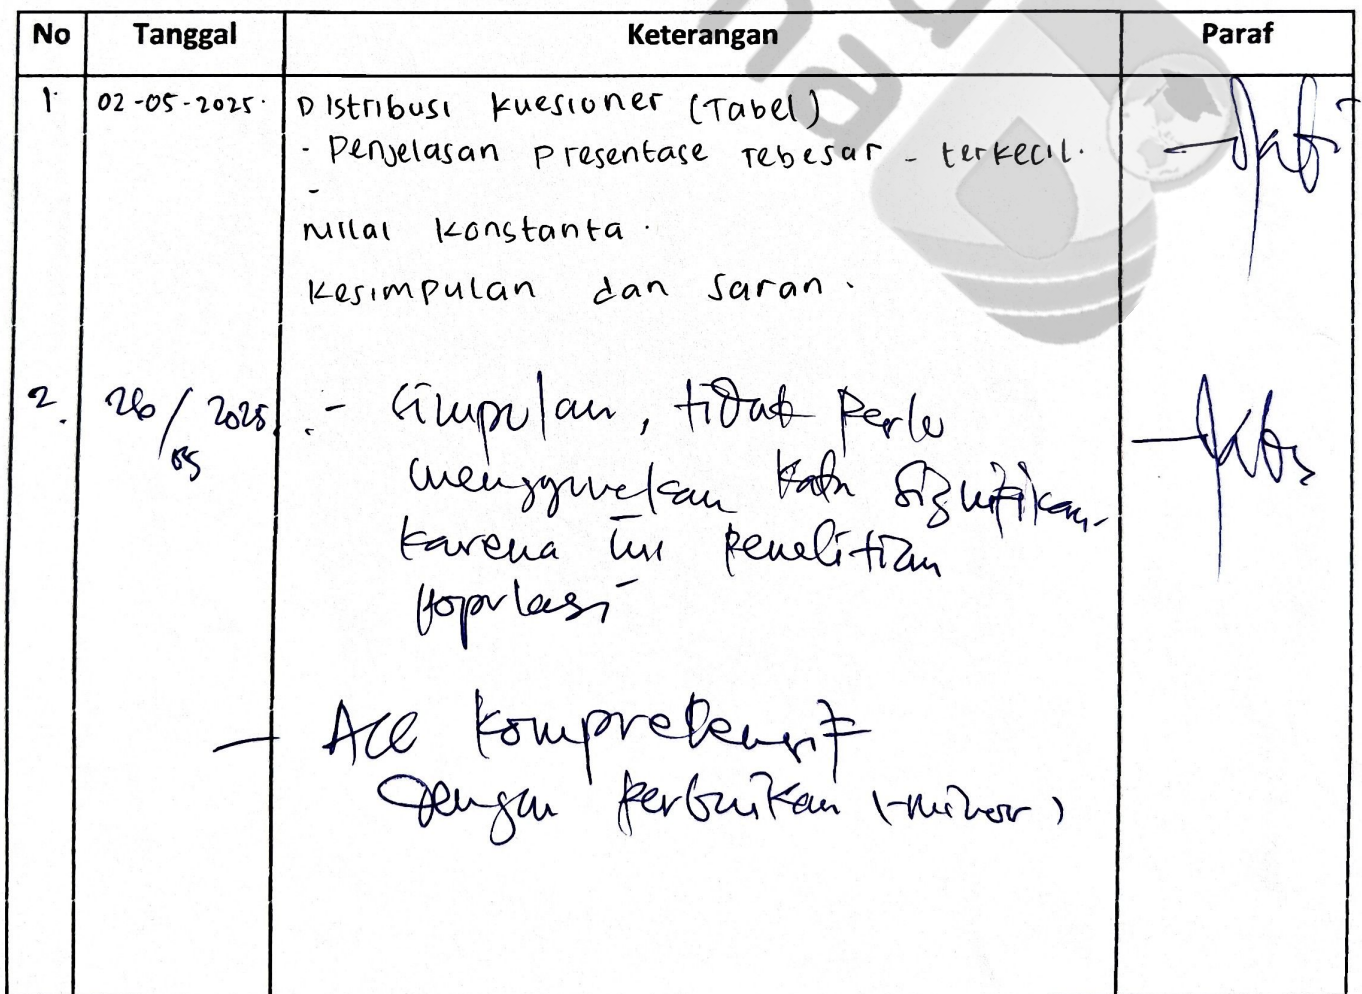 No Tanggal Keterangan Paraf
1. 02-05-2025. Distribusi Kuesioner (Tabel)
- Penjelasan Presentase Tebesar - terkecil.
-
Nilai Konstanta.
Kesimpulan dan Saran.
2. 26/05 2025. - Simpulan, tidak perlu
menggunakan kata signifikan
karena ini penelitian
populasi
- Acc Komprehensif
dengan perbaikan (minor)